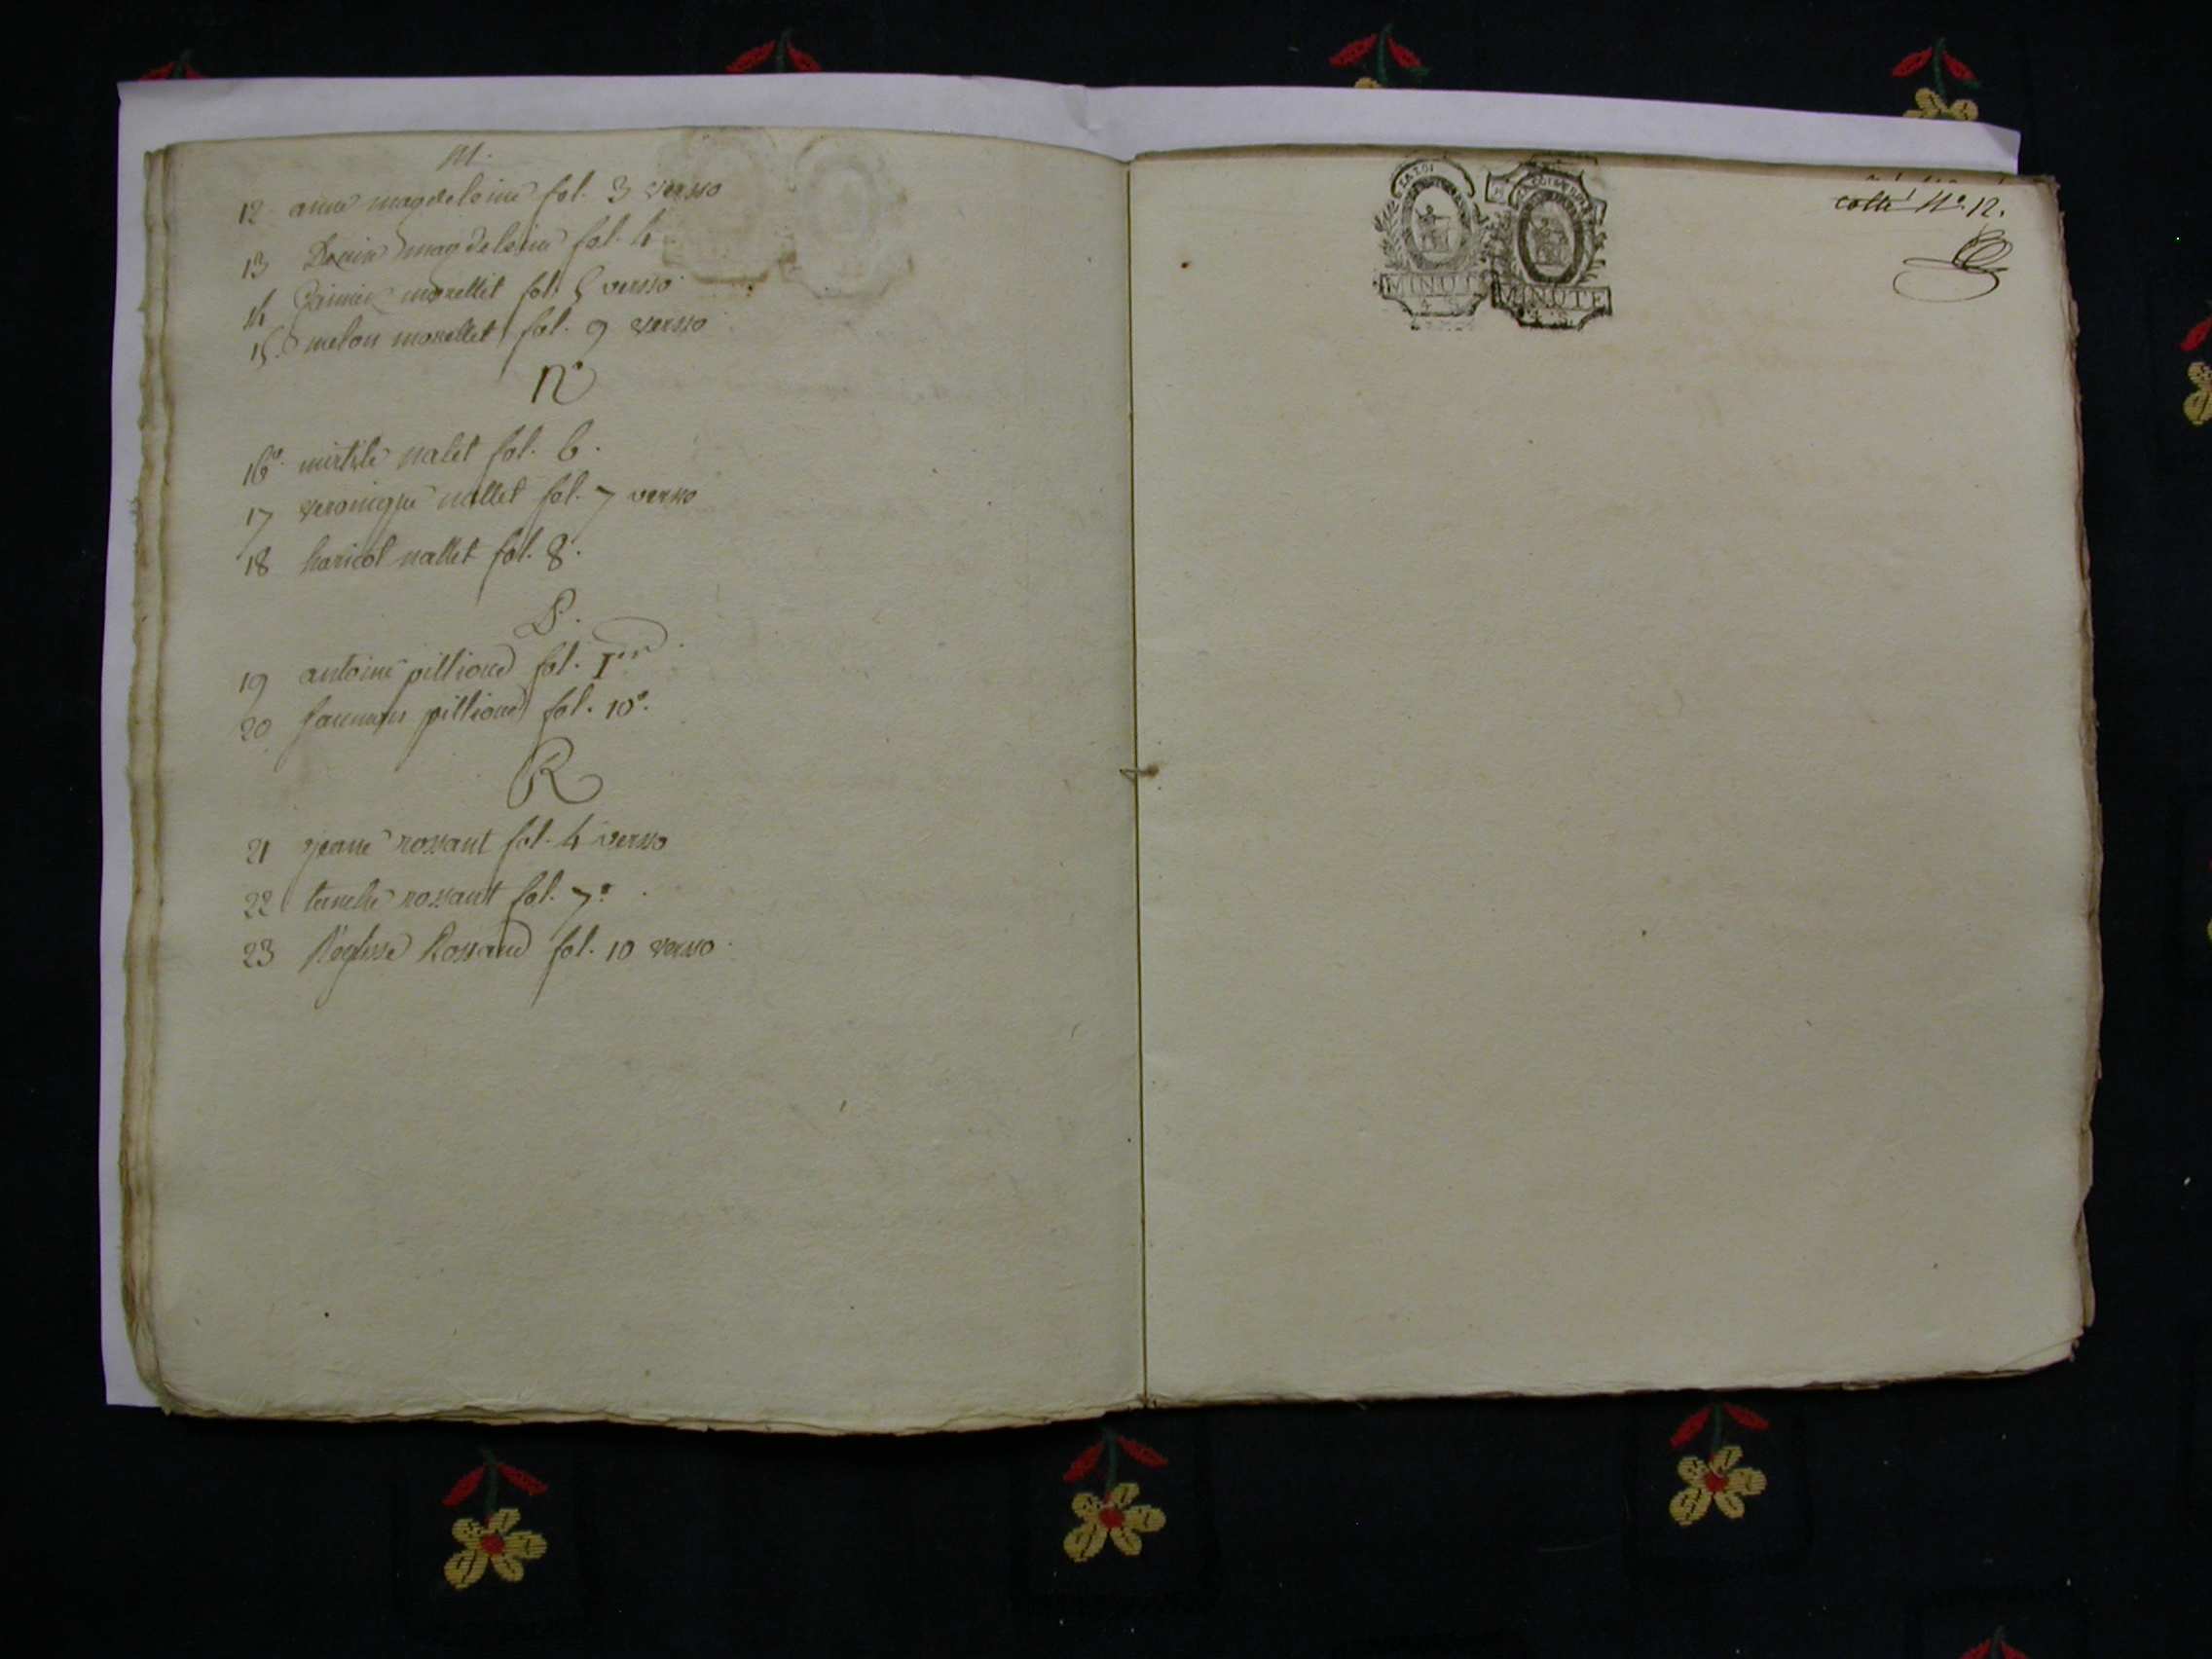 M.
12 anne magdeleine fol. 3 verso
13 magdeleine fol. 4
14 morellet fol. 5 versso
15. melon morellet fol. 9 versso
N
16º. mirtile nalet fol. 6.
17 veronique nallet fol. 7 verso
18 haricot nallet fol. 8.
P.
19 antoine pilliond fol. 1er
20 pilliond fol. 10º.
R
21 jeane rossant fol. 4 verso
22 rossant fol. 7º.
23 Rossand fol. 10 verso.
MINUTE
MINUTE
cotté Nº. 12.